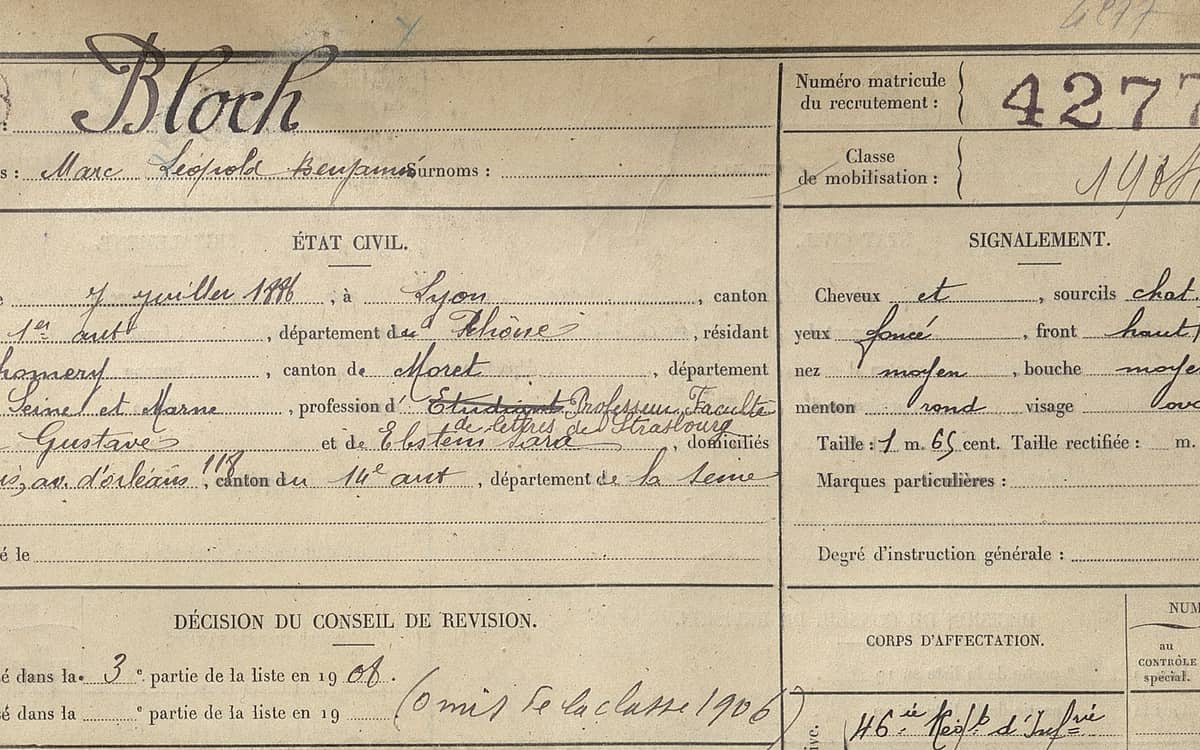 4277
Bloch
Numéro matricule
du recrutement :
4277
s : Marc Léopold Benjamin Surnoms :
Classe
de mobilisation :
1908
ÉTAT CIVIL.
SIGNALEMENT.
e 7 juillet 1886, à Lyon, canton
1er arrt, département du Rhône, résidant
homery, canton de Moret, département
Seine et Marne, profession d' Etudiant Professeur Faculté
de lettres de Strasbourg
Gustave et de Ebstein Sara, domiciliés
is, av. d'orléans 118, canton du 14e arrt, département de la Seine
é le
Cheveux et, sourcils chat
yeux foncé, front haut
nez moyen, bouche moye
menton rond visage ova
Taille : 1 m. 65 cent. Taille rectifiée : m.
Marques particulières :
Degré d'instruction générale :
DÉCISION DU CONSEIL DE REVISION.
é dans la 3e partie de la liste en 1908.
é dans la e partie de la liste en 19 (omis de la classe 1906)
CORPS D'AFFECTATION.
NUM
au
CONTRÔLE
spécial.
ive.
46ie Regt d'Infrie